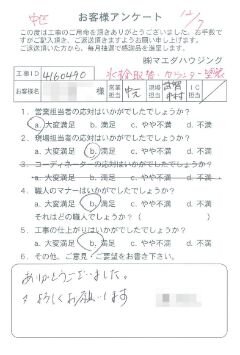 お客様アンケート 12/7
この度は工事のご用命を頂きありがとうございました。お手数で
すがご記入頂き、ご返送頂きますようお願い申し上げます。
ご返送頂いた方から、毎月抽選で感謝品を進呈します。
㈱マエダハウジング
工事ID 4160490
お客様名 様 営業担当 中元 現場担当 IC担当
1. 営業担当者の応対はいかがでしたでしょうか?
a. 大変満足 b. 満足 c. やや不満 d. 不満
2. 現場担当者の応対はいかがでしたでしょうか?
a. 大変満足 b. 満足 c. やや不満 d. 不満
3. コーディネーターの応対はいかがでしたでしょうか?
a. 大変満足 b. 満足 c. やや不満 d. 不満
4. 職人のマナーはいかがでしたでしょうか?
a. 大変満足 b. 満足 c. やや不満 d. 不満
それはどの職人でしょうか? ( )
5. 工事の仕上がりはいかがでしたでしょうか?
a. 大変満足 b. 満足 c. やや不満 d. 不満
6. その他、ご意見・ご要望をお書き下さい。
ありがとうございました。
よろしくお願いします